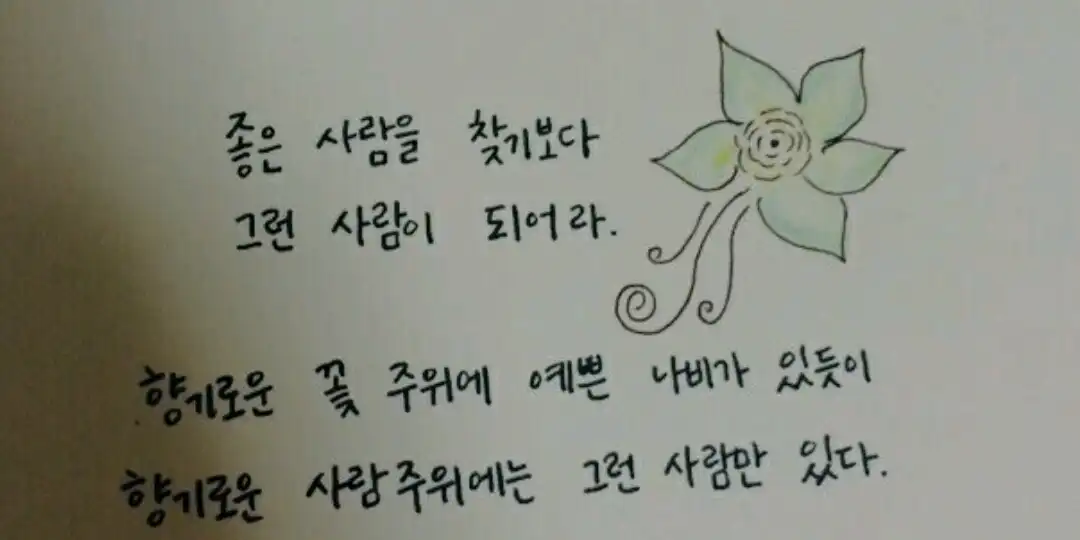 좋은 사람을 찾기보다
그런 사람이 되어라.
향기로운 꽃 주위에 예쁜 나비가 있듯이
향기로운 사람 주위에는 그런 사람만 있다.